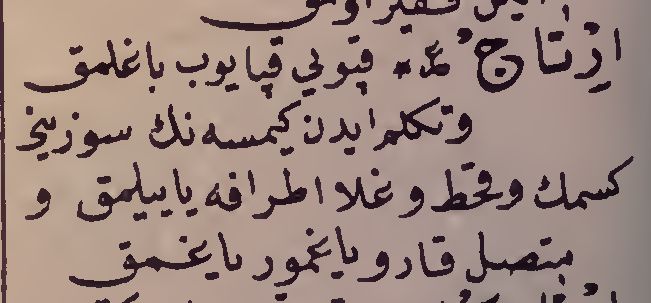 ايمش فقير اولمق
اِرْتَاجْ عم قپويى قپايوب باغلمق
وتكلم ايدن كيمسه نك سوزينى
كسمك وقحط وغلا اطرافه يايلمق و
متصل قار و ياغمور ياغمق